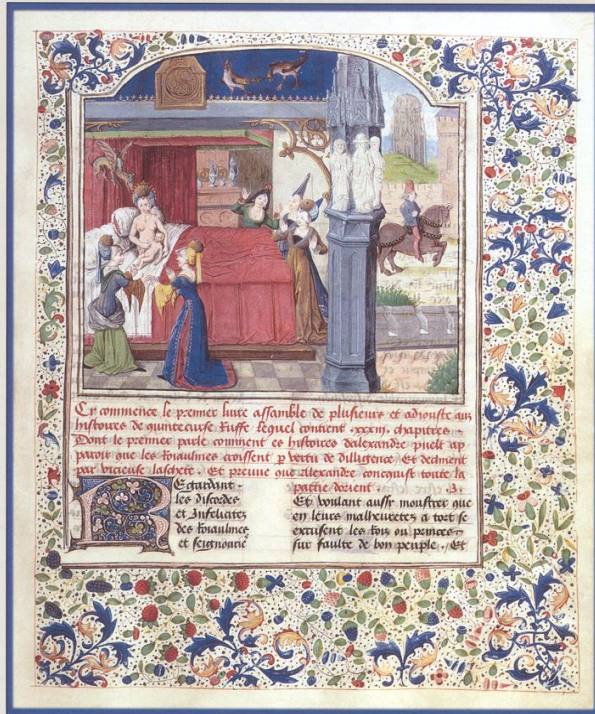 Cy commence le premier livre assamble de plusieurs et adiouste aux
histoires de quintecurse Ruffe lequel contient .xxxiii. chapitres .
Dont le premier parle comment es histoires dalexandre puelt ap
paroir que les Roiaulmes croissent p vertu de dilligence , Et declinent
par vicieuse laschete , Et preuve que alexandre conquist toute la
partie dorient . .i.
Egardant
les discordes
et Infelicites
des Roiaulmes
et seignourie
Et voulant aussi monstrer que
en leurs malheuretez a tort se
excusent les Rois ou princes
sur faulte de bon peuple , Et